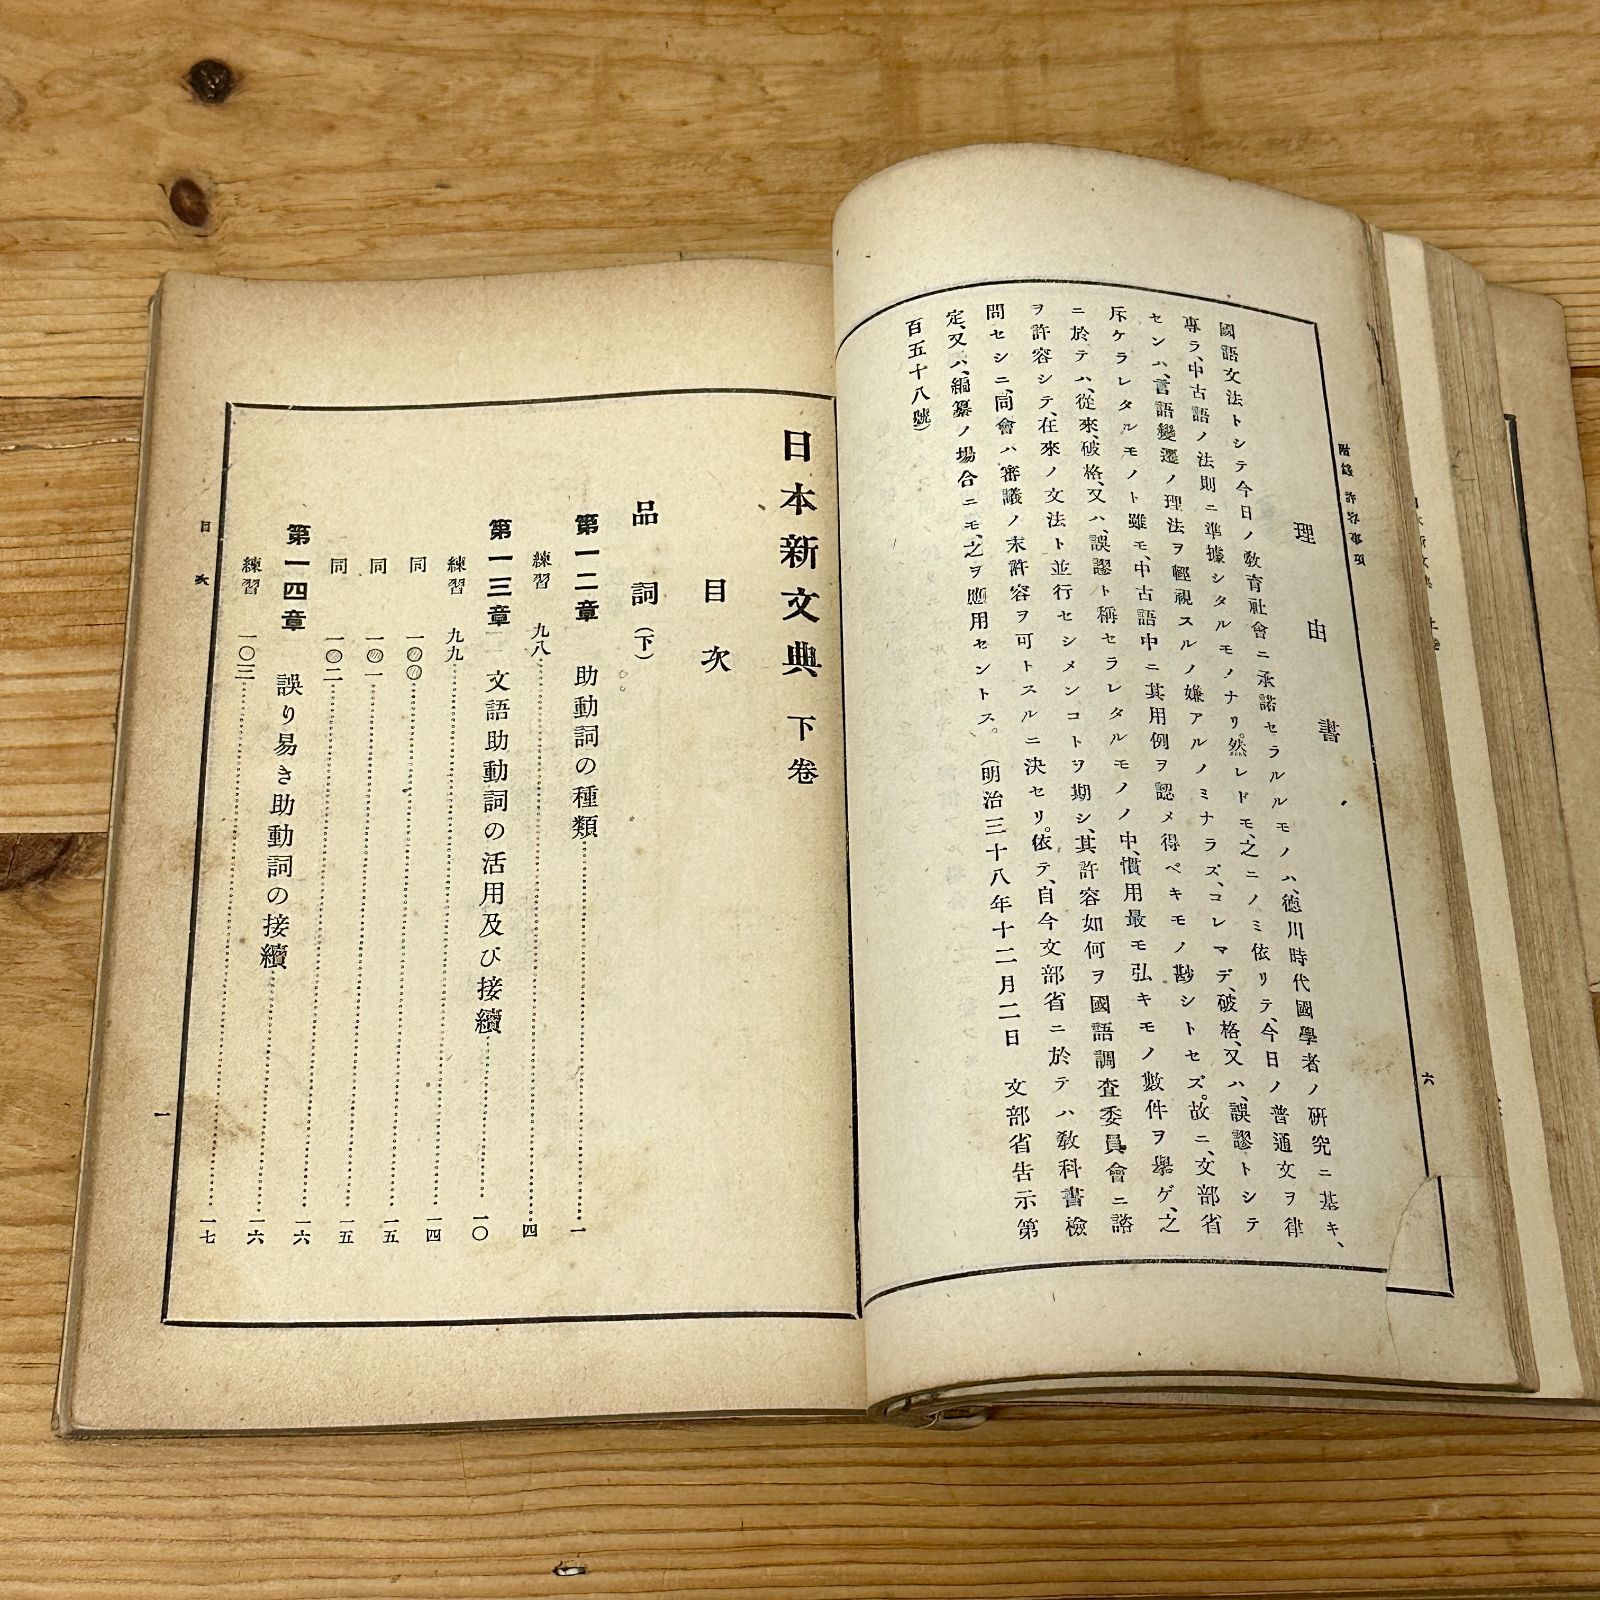 理由書
國語文法トシテ今日ノ教育社會ニ承諾セラルルモノハ、德川時代國學者ノ研究ニ基キ、
專ラ、中古語ノ法則ニ準據シタルモノナリ。然レドモ、之ニノミ依リテ、今日ノ普通文ヲ律
センハ、言語變遷ノ理法ヲ輕視スルノ嫌アルノミナラズ、コレマデ、破格、又ハ、誤謬トシテ
斥ケラレタルモノト雖モ、中古語中ニ其用例ヲ認メ得ベキモノ尠シトセズ。故ニ、文部省
ニ於テハ、從來、破格、又ハ、誤謬ト稱セラレタルモノノ中、慣用最モ弘キモノ數件ヲ擧ゲ、之
ヲ許容シテ、在來ノ文法ト並行セシメンコトヲ期シ、其許容如何ヲ國語調査委員會ニ諮
問セシニ、同會ハ審議ノ末許容ヲ可トスルニ決セリ。依テ、自今文部省ニ於テハ教科書檢
定、又ハ、編纂ノ場合ニモ、之ヲ應用セントス。(明治三十八年十二月二日 文部省告示第
百五十八號)
六
日本新文典 下卷
目次
品詞(下)
第一二章 助動詞の種類 一
練習 九八 四
第一三章 文語助動詞の活用及び接續 一〇
練習 九九 一四
同 一〇〇 一五
同 一〇一 一五
同 一〇二 一六
第一四章 誤り易き助動詞の接續 一六
練習 一〇三 一七
目次
一